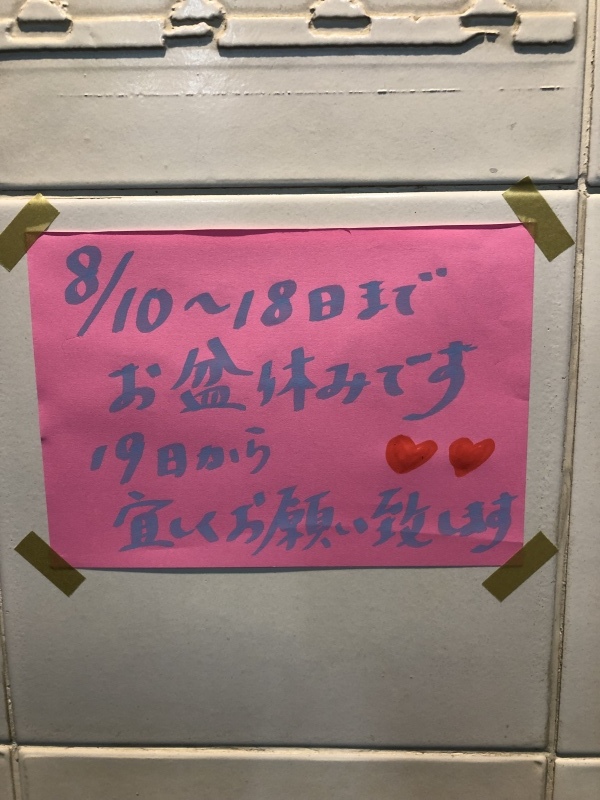 8/10～18日まで
お盆休みです
19日から
宜しくお願い致します